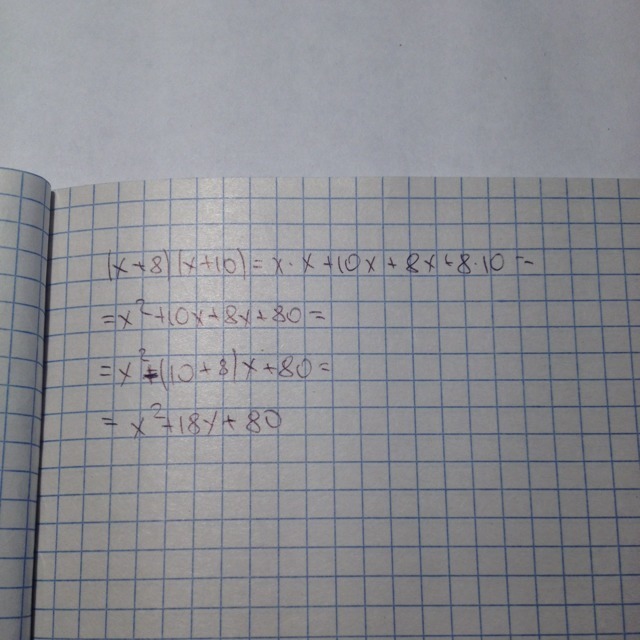 (x+8)(x+10)=x·x+10x+8x+8·10=
=x²+10x+8x+80=
=x²-(10+8)x+80=
=x²+18x+80